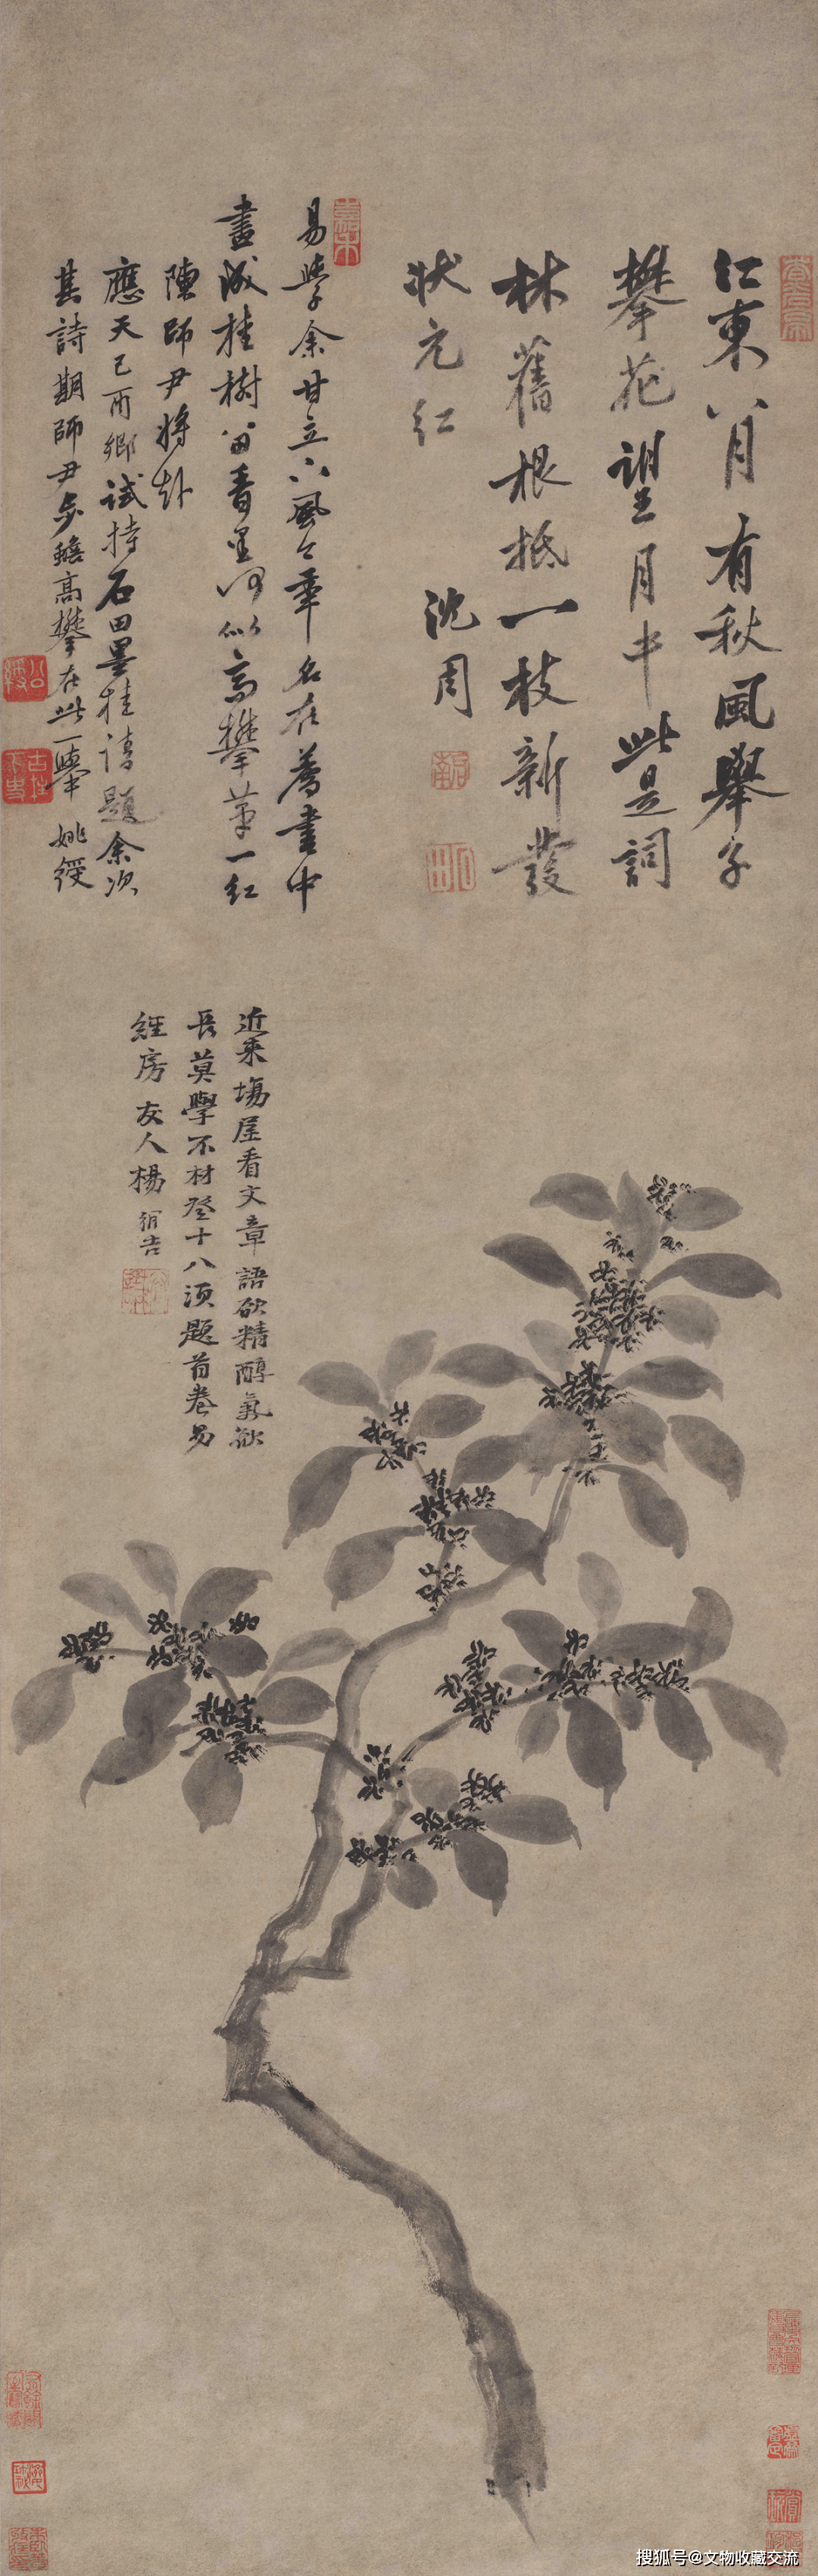 江東八月有秋風舉子
攀花望月中此是詞
林舊根抵一枝新發
狀元紅
沈周
易學余甘立下風今年名在薦書中
畫成桂樹留香里何似高攀第一紅
陳師尹將赴
應天己酉鄉試持石田墨桂請題余次
其詩期師尹步蟾高攀在此一舉 姚綬
近來場屋看文章語欲精醇氣欲
長莫學不材登十八須題首卷易
經房 友人楊
搜狐号@文物收藏交流